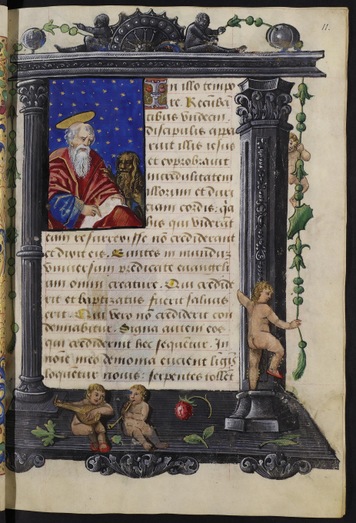 11.
In illo tempo
re. Recūbē
tibus vndecim
discipulis appa
ruit illis iesus
et exprobauit
incredulitatem
illorum et duri
ciam cordis: q̄a
his qui viderāt
eum resurrexisse nō crediderunt
et dixit eis. Euntes in mundū
vniuersum predicate euangeliū
omni creature. Qui credide
rit et baptizatus fuerit saluus
erit. Qui vero nō crediderit con
demnabitur. Signa autem eos
qui crediderint hec sequētur. In
noīe meo demonia eiicient linguis
loquētur nouis: serpentes tollēt